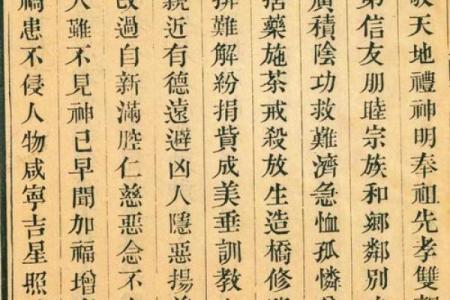 敬天地禮神明奉祖先孝雙親
弟信友朋睦宗族和鄉鄰別
廣積陰功救難濟急恤孤憐
捨藥施茶戒殺放生造橋修
排難解紛捐貲成美垂訓教
親近有德遠避凶人隱惡揚
改過自新滿腔仁慈惡念不
人雖不見神已早聞加福增
禍患不侵人物咸寧吉星照